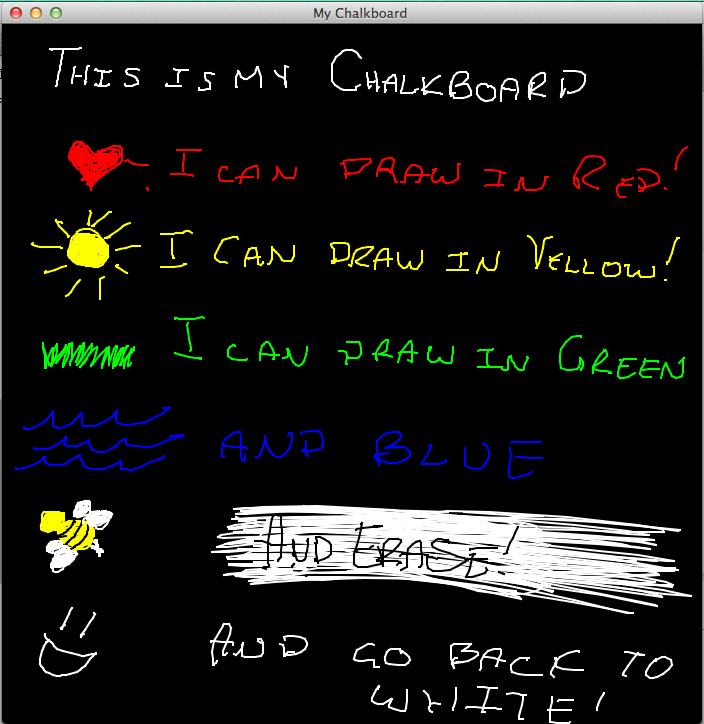 My Chalkboard
THIS IS MY CHALKBOARD
I CAN DRAW IN RED!
I CAN DRAW IN YELLOW!
I CAN DRAW IN GREEN
AND BLUE
AND ERASE!
AND GO BACK TO
WHITE!